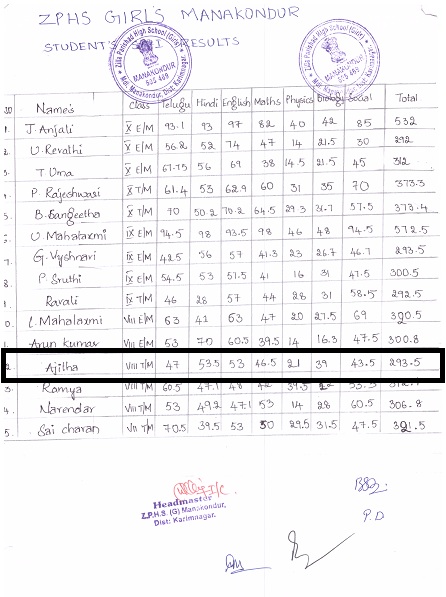 ZPHS GIRL'S MANAKONDUR
STUDENT'S RESULTS
Name's Class Telugu Hindi English Maths Physics Biology Social Total
1. J. Anjali X E/M 93.1 93 97 82 40 42 85 532
U. Revathi X E/M 56.2 52 74 47 14 21.5 30 292
T. Uma X E/M 67.75 56 69 38 14.5 21.5 45 312
P. Rajeshwari X T/M 61.4 53 62.9 60 31 35 70 373.3
B. Sangeetha X T/M 70 50.2 70.2 64.5 29.3 31.7 57.5 373.4
U. Mahalaxmi IX E/M 94.5 98 93.5 98 46 48 94.5 572.5
G. Vyshnavi IX E/M 42.5 56 57 41.3 23 26.7 46.7 293.5
P. Sruthi IX E/M 54.5 53 57.5 41 16 31 47.5 300.5
Ravali IX T/M 46 28 57 44 28 31 58.5 292.5
L. Mahalaxmi VIII E/M 63 41 63 47 20 27.5 69 320.5
Arun Kumar VIII E/M 53 70 60.5 39.5 14 16.3 47.5 300.8
2 Ajilha VIII T/M 47 53.5 53 46.5 21 39 43.5 293.5
Ramya VIII T/M 60.5 47.1 48 42
4. Narendar VIII T/M 53 49.2 47.1 53 14 28 60.5 306.8
5. Sai charan VIII T/M 70.5 39.5 53 50 29.5 31.5 47.5 321.5
Headmaster
Z.P.H.S (G) Manakondur,
Dist: Karimnagar.
P.D